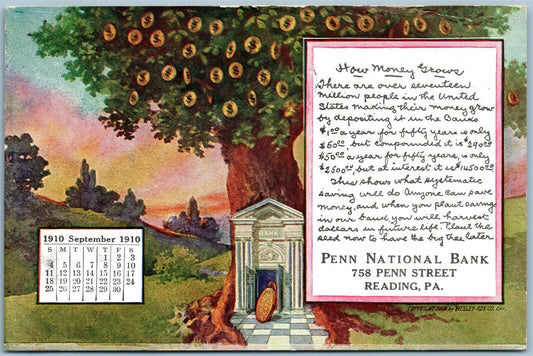 How Money Grows
There are over seventeen
million people in the United
States making their money grow
by depositing it in the Banks
$1.00 a year for fifty years is only
$50.00, but compounded it is $290.00
$50.00 a year for fifty years, is only
$2500.00 but at interest it is $14500.00
This shows what systematic
saving will do Anyone can save
money, and when you plant saving
in our bank, you will harvest
dollars in future life. Plant the
seed now to have the big tree later
PENN NATIONAL BANK
758 PENN STREET
READING, PA.
BANK
1910 September 1910
S M T W T F S
1 2 3
4 5 6 7 8 9 10
11 12 13 14 15 16 17
18 19 20 21 22 23 24
25 26 27 28 29 30